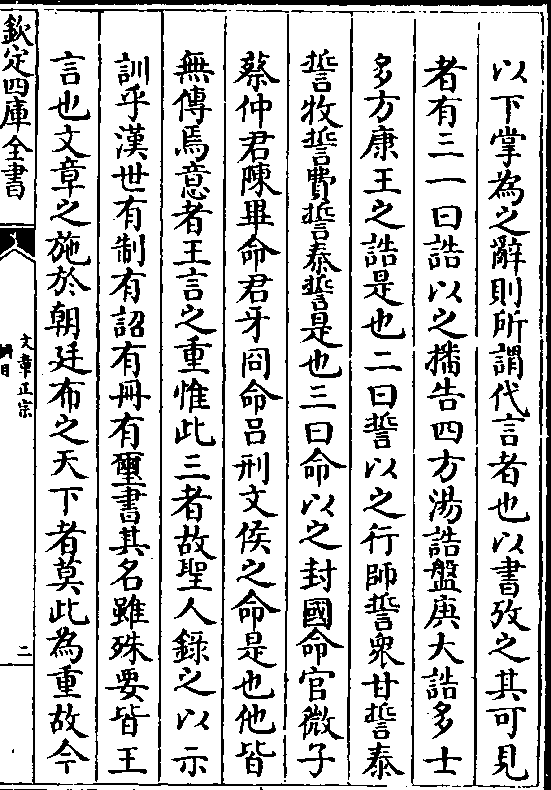 以下掌為之辭則所謂代言者也以書攷之其可見
者有三一曰誥以之播告四方湯誥盤庚大誥多士
多方康王之誥是也二曰誓以之行師誓衆甘誓泰
誓牧誓費誓秦誓是也三曰命以之封國命官微子
蔡仲君陳畢命君牙冏命呂刑文侯之命是也他皆
無傳焉意者王言之重惟此三者故聖人錄之以示
訓乎漢世有制有詔有冊有璽書其名雖殊要皆王
言也文章之施於朝廷布之天下者莫此為重故今
欽定四庫全書
文章正宗
綱目
二